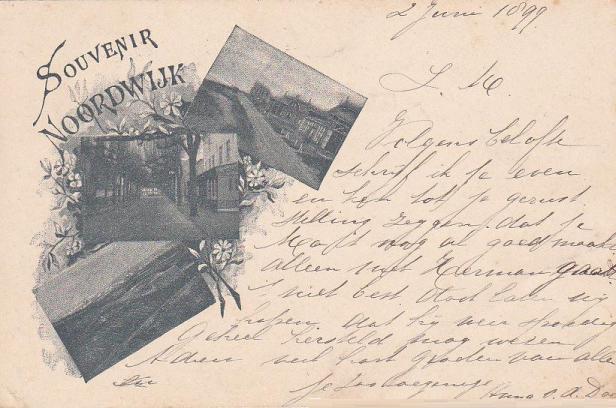 SOUVENIR
NOORDWIJK
2 Juni 1899.
L. M.
Volgens belofte
schrijf ik je even
en kan tot je gerust
stelling zeggen dat je
nog al goed maakt
alleen met Herman gaat
't niet best. Doch laten wij
hopen dat hij weer spoedig
Geheel hersteld mag wezen
Adieu veel groeten van alle
je
Anna v. d.